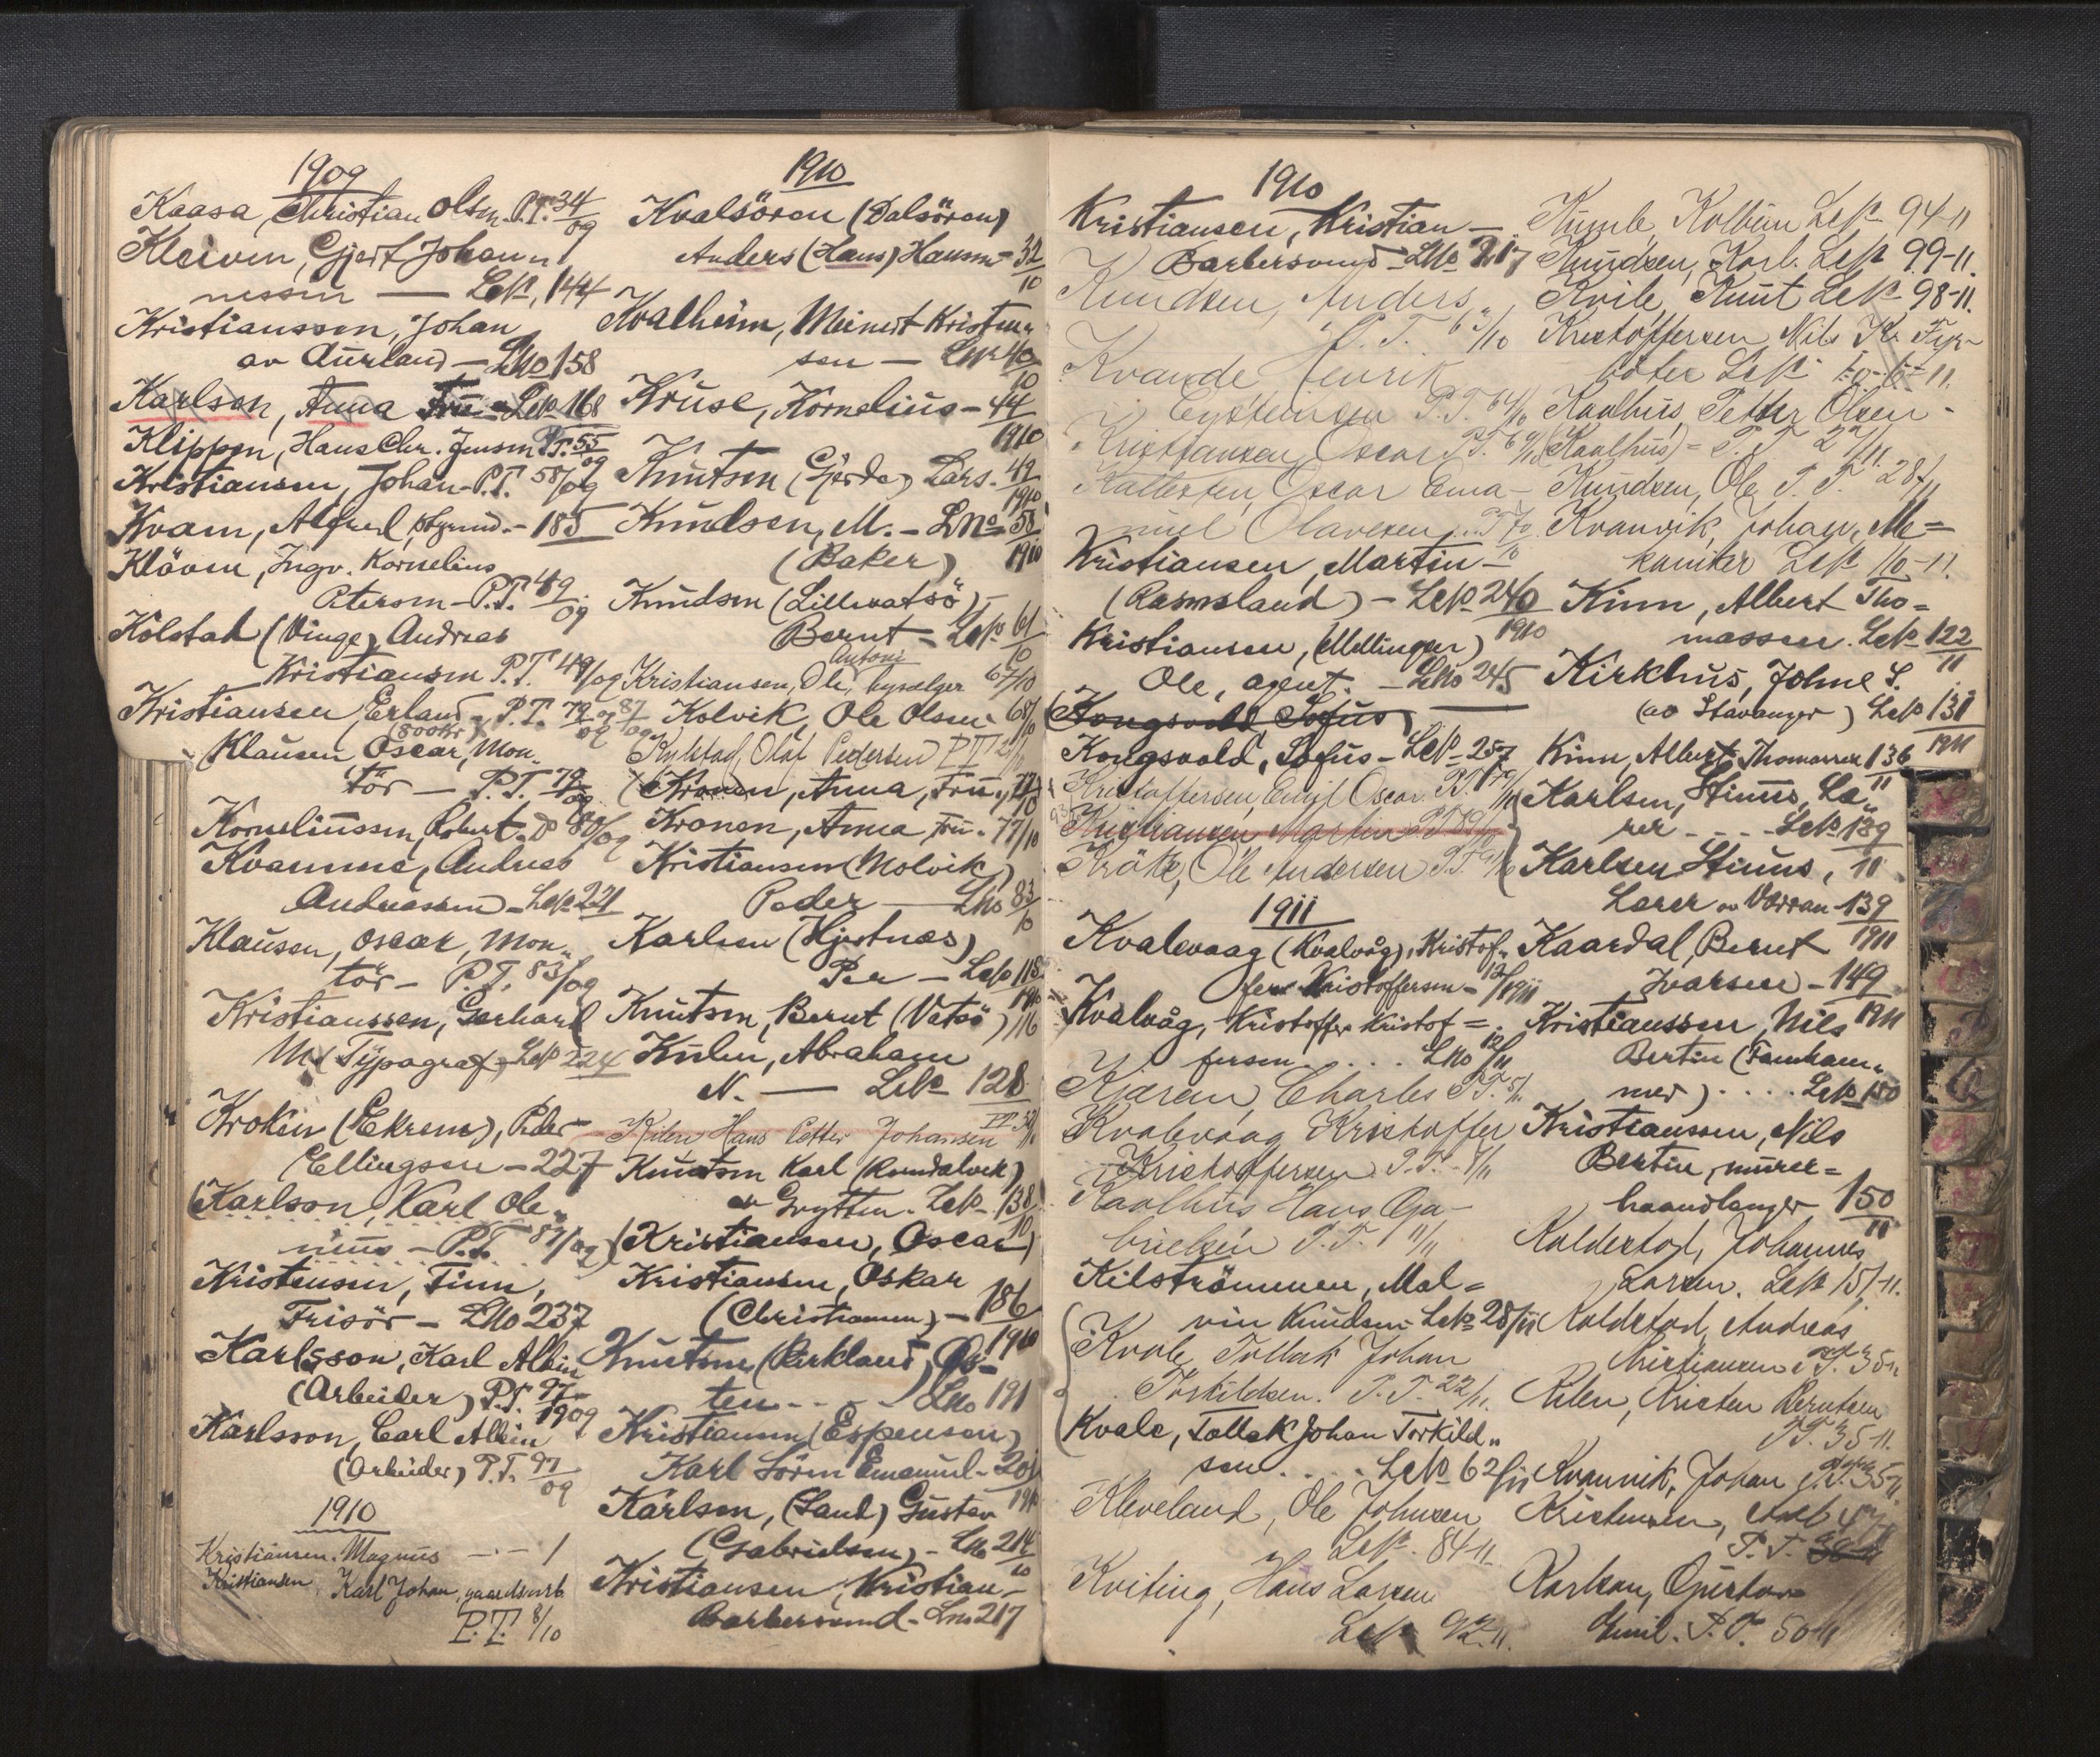 1909
Kaasa, Christian Olsen. P.T. 34/09
Kleiven, Gjert Johan„
nessen — Lep. 144
Kristiansson, Johan
av Aurland — Lno 158
Karlson, Anna Fru - Lep 168
Klippen, Hans Chr. Jensen P.T. 55/09
Kristiansen, Johan - P.T. 58/09
Kvam, Alfred, - 185
Klöven, Ingv. Kornelius
Petersen - P.T. 49/09
Kolstad (Vinge) Andreas
Kristiansen P.T. 49/09
Kristiansen Erland - P.T. 79/09 87/09
(800kr)
Klausen Oscar, Mon„
tör — P.T. 79/09
Korneliussen, Robert. 80/09
Kvamme, Andreas
Andreassen - Lep 221
Klausen, Oscar, Mon„
tör - P.T. 83/09
Kristianssen, Gerhard
M. (Typograf) - Lep 224
Kroken (Ekrene), Peder
Ellingsen - 227
(Karlson, Karl Ole„
nius - P.T. 87/09)
Kristensen, Finn,
Frisör - Lno 237
Karlsson, Karl Albin
(Arbeider) P.T. 97/1909
Karlsson, Carl Albin
(Arbeider) P.T. 97/09
1910
Kristiansen. Magnus — - 1
Kristiansen, Karl Johan, gaardsarb.
P.T. 8/10
1910
Kvalsören (Dalsören)
Anders (Hans) Hansen - 32/10
Kvalheim, Meinert Kristen„
sen — Lep 40/10
Kruse, Kornelius - 44/1910
Knutsen (Gjerde) Lars - 49/1910
Knudsen, M. - Lno 58/1910
(Baker)
Knudsen (Lillevatsö) -
Bernt - Lep 61/10
Antoni
Kristiansen, Ole, bysælger 67/10
Kolvik, Ole Olsen 68/10
Olaf Pedersen P.T.
(Kronen, Anna, Fru, 77/10
Kronen, Anna Fru. 77/10
Kristiansen (Molvik)
Peder — Lno 83/10
Karlsen (Hjertnæs)
Per — Lep 118/1910
Knutsen, Bernt (Vatsö) 116
Kulen, Abraham
N. — Lep 128
Kilen Hans Petter Johansen P.T.
Knutsen Karl (Romdalvek)
av Grytten. Lep 138/10
(Kristiansen, Oscar)
Kristiansen, Oskar
(Christiansen) - 186/1910
Knutsen (Birkland), Os-
ten - - - Lno 191
Kristiansen (Espensen)
Karl Sören Emanuel - 201/1910
Karlsen, (Sand) Gustav
(Gabrielsen) - Lno 214/10
Kristiansen, Kristian -
Barbersvend - Lno 217
1910
Kristiansen, Kristian —
Barbersvend - Lno 217
Knudsen, Anders
P.T. 63/10
Kvande Henrik
Eysteinsen P.T. 64/10
Kristiansen, Oscar P.T. 69/10
Oscar Ema-
nuel Olavesen P.T. 70/10
Kristiansen, Martin -
(Rasmsland) - Lep 240/1910
Kristiansen, (Mellingen)
Ole, agent. - Lno 245
(Kongsvold, Sofus)
Kongsvold, Sofus - Lep 257
Kristoffersen, Emil Oscar P.T.
Kristiansen, Martin P.T. 89/10
Kråke, Ole Andersen P.T.
1911
Kvalevaag (Kvalvåg), Kristof„
fer Kristoffersen - 12/1911
Kvalvåg, Kristoffer Kristof =
fersen . . . . Lno 12/11
Kjæran, Charles P.T. 5/11
Kvalevaag Kristoffer
Kristoffersen P.T. - 7/11
Kaalhus Hans Ga-
brielsen P.T. 11/11
Kilströmmen, Mal =
vin Knudsen - Lep 28/11
Kvale Tollak Johan
Torkildsen. P.T. 22/11
Kvale, Tollak Johan Torkild„
sen . . . . Lep 62/11
Kleveland, Ole Johnsen
Lep. 84-11
Kviting, Hans Larsen
Lep 92-11.
Kumle, Kolbein Lep 94-11
Knudsen, Karl. Lep 99-11.
Kvile, Knut Lep 98-11.
Kristoffersen, Nils Kr. Fyr-
böter Lep
Kaalhus, Peder Olsen -
(Kaalhus) = P.T. 27/11
Knudsen, Ole P.T. 28/11
Kvanvik, Johan, Me =
kaniker Lep 110-11.
Kinn, Albert Tho =
massen. Lep 122/11
Kirkhus, Johne S.
(av Stavanger) Lep 131/1911
Kinn, Albert Thomassen 136/11
(Karlsen, Stinus, Læ„
rer - - - - Lep 139/11
Karlsen Stinus,
Lærer av Værran - 139/1911
Kaardal, Bernt
Ivarsen - 149/1911
Kristianssen, Nils
Bertin (Famham„
mer) . . . . Lep 150
Kristianssen, Nils
Bertin, murer =
haandlanger 150/11
Koldertod, Johannes
Larsen. Lep 151-11.
Koldertod, Andreas
Kristiansen P.T. 35-11
Kilen, Kristen Berntsen
P.T. 35-11.
Kvanvik, Johan P.T. 35-11.
Kristensen,
P.T.
Karlsen, Gustav
Emil. P.T. 50-11